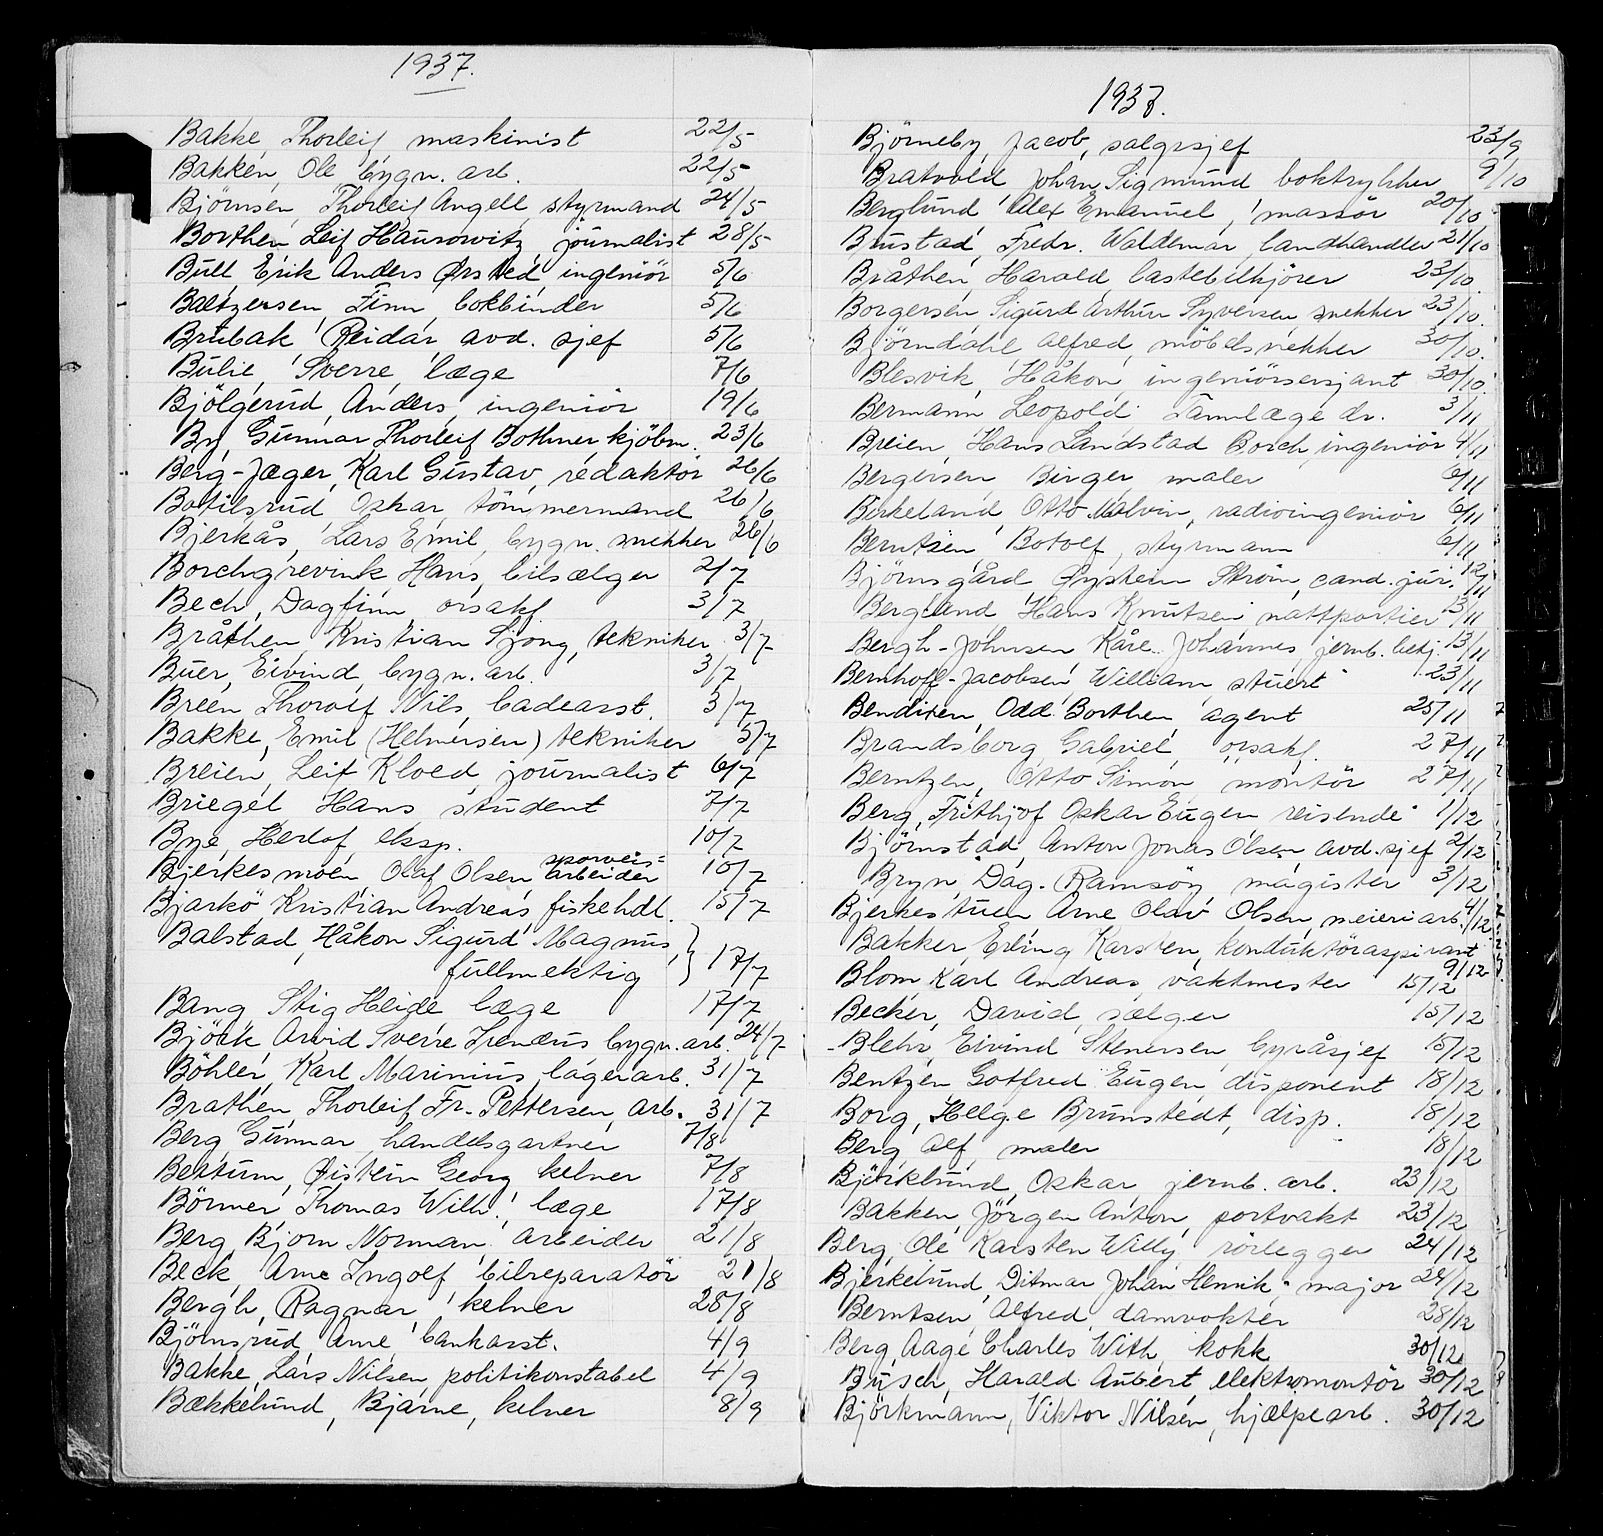 1937.
Bakke, Thorleif maskinist 22/5
Bakken, Ole bygn. arb. 22/5
Björnsen, Thorleif Angell styrmand 24/5
Borthen Leif Hausowitz journalist 28/5
Bull, Erik Anders Ørsted, ingeniör 5/6
Baltzersen, Finn, bokbinder 5/6
Brubak Reidar avd. sjef 5/6
Bulie, Sverre, læge 7/6
Bjölgerud, Anders, ingeniör 19/6
By, Gunnar Thorleif Bothner kjöbm. 23/6
Berg-Jæger, Karl Gustav, redaktör 26/6
Botilsrud Oskar tömmermand 26/6
Bjerkås, Lars Emil, bygn. snekker 26/6
Borchgrevink Hans, bilsælger 2/7
Bech, Dagfinn, orsakf 3/7
Bråthen, Kristian Sjong, tekniker 3/7
Buer, Eivind, bygn. arb. 3/7
Breen Thorolf Nils, badeasst. 3/7
Bakke, Emil (Helmersen) tekniker 5/7
Breien, Leif Kloed, journalist 6/7
Briegel Hans, student 7/7
Bye, Herlof, eksp. 10/7
Bjerkesmoen Olaf Olsen sporveis= arbeider 10/7
Bjarkö, Kristian Andreas fiskehdl. 15/7
Balstad, Håkon Sigurd Magnus,
fullmektig } 17/7
Bang, Stig Heide læge 17/7
Björk, Arvid Sverre Irenæus bygn. arb. 24/7
Böhler, Karl Marinius, lagerarb. 31/7
Brathen, Thorleif Fr. Pettersen, arb. 31/7
Berg, Gunnar, handelsgartner 7/8
Bettum, Øistein Georg kelner 7/8
Börmer Thomas Wilh., læge 17/8
Berg, Bjorn Norman, arbeider 21/8
Beck, Arne Ingolf, bilreparatör 21/8
Bergh, Ragnar, kelner 28/8
Björnsrud, Arne, bankasst. 4/9
Bakke, Lars Nilsen politikonstabel 4/9
Bækkelund, Bjarne, kelner 8/9
1937.
Björneby, Jacob, salgssjef 23/9
Bratvold, Johan Sigmund boktrykker 9/10
Berglund, Alex Emanuel, massör 20/10
Brustad, Fredr. Waldemar, landhandler 21/10
Bråthen, Harald lastebilkjörer 23/10.
Borgersen, Sigurd Arthur Syversen snekker 23/10.
Björndahl Alfred, möbelsnekker 30/10.
Blesvik, Håkon, ingeniörsersjant 30/10.
Bermann Leopold Tannlæge dr. 3/11
Breien, Hans Landstad Borch, ingeniör 4/11
Bergersen, Birger maler 6/11
Birkeland, Otto Malvin, radioingeniör 6/11
Berntsen Botolf, styrmann 6/11
Björnsgård Øystein Ström, cand. jur. 12/11
Bergland, Hans Knutsen nattportier 13/11
Bergh-Johnsen Kåre Johannes jernb. betj. 13/11
Bernhoff-Jacobsen, William, stuert 23/11
Benditen, Odd Borthen agent 25/11
Brandsborg Gabriel, örsakf. 27/11
Berntzen, Otto Simon, montör 27/11
Berg, Frithjof Oskar Eugen reisende 1/12
Björnstad, Anton Jonas Olsen, avd. sjef 2/12
Bryn, Dag. Ramsöy, magister 3/12
Bjerkestuen Arne Olav Olsen, meieriarb. 4/12
Bakker, Erling Karsten, konduktöraspirant 9/12
Blom Karl Andreas vaktmester 15/12
Becker, David, sælger 15/12
Blehr, Eivind Stenersen, byråsjef 15/12
Bentzen Gotfred Eugen, disponent 18/12
Borg, Helge Brunstedt, disp. 18/12
Berg, Alf, maler 18/12
Björklund, Oskar, jernb. arb. 23/12
Bakken, Jörgen Anton, portvakt 23/12
Berg, Ole Karsten Willy rörlegger 24/12
Bjerkelund, Ditmar Johan Henrik, major 24/12
Berntsen, Alfred, damvokter 28/12
Berg, Aage Charles With, kokk 30/12
Busch, Harald Aubert, elektromontör 30/12
Björkmann, Viktor Nilsen, hjælpearb. 30/12